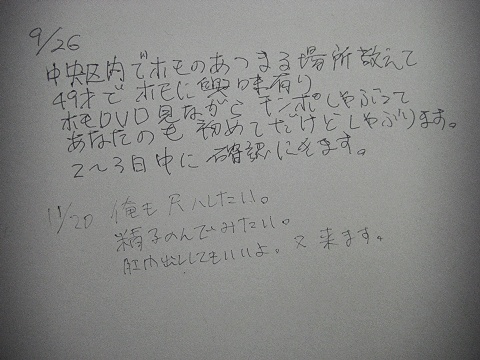 9/26
中央区内でホモのあつまる場所教えて
49才でホモに興味有り
ホモDVD見ながらチンポしゃぶって
あなたのも初めてだけどしゃぶります。
2〜3日中に確認にきます。
11/20 俺も尺八したい。
精子のんでみたい。
肛内出ししてもいいよ。又来ます。